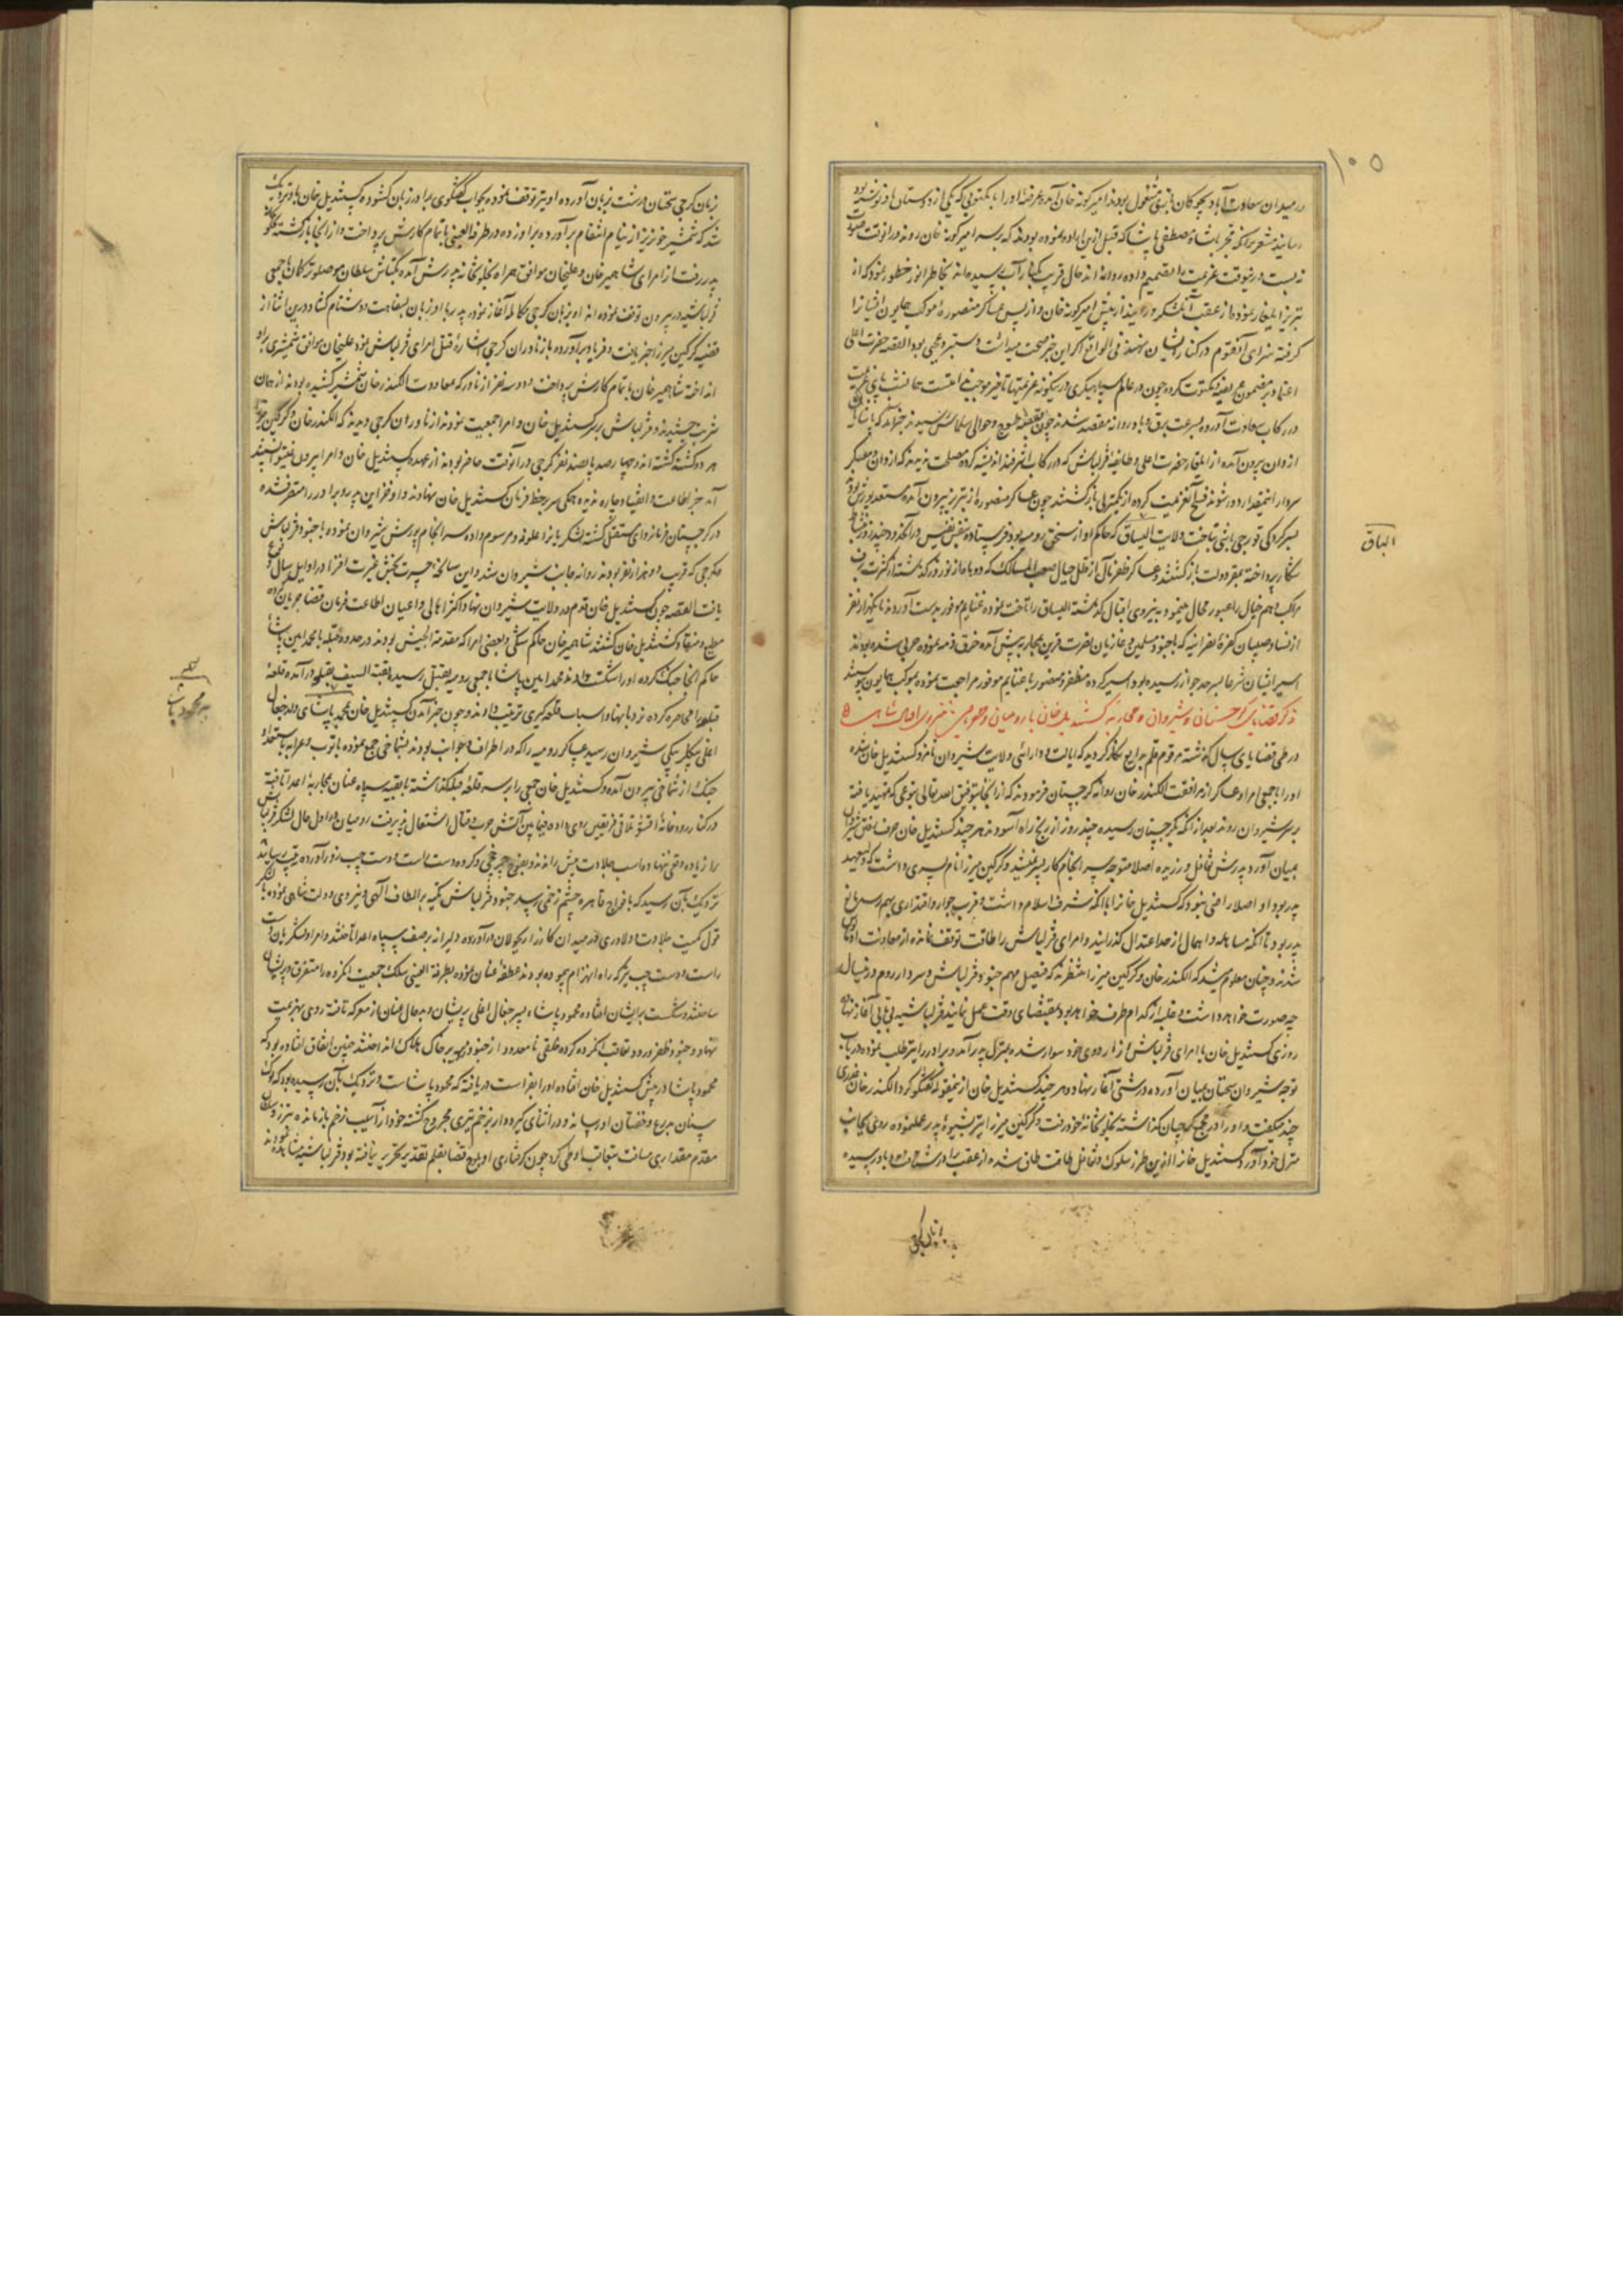 ۱۰۵
در میدان سعادت آباد بچوکان بازی مشغول بودند امیرکونه خان آمده عرضه او را با مکتوبی که یکی از دوستان او نوشته بود
رسانید مشعر بر آنکه محمد پاشا و مصطفی پاشا که قبل ازین اراده نموده بودند که بر سر امیرکونه خان روند در آنوقت
در عرض وقت عزیمت را تصمیم داده روانه اند حال قریب بکنار آب رسیده اند بخاطر انور خطور نمود که از
تبریز ایلغار نموده از عقب آن لشکر در آیند از پیش امیرکونه خان و از پس عساکر منصوره موکب همایون ایشانرا
گرفته سزای آنقوم در کنار ایشان نهند فی الواقع اگر این خبر صحت میداشت دستبرد عجبی بود القصه حضرت اعلی
اعتماد بر مضمون عریضه و مکتوب کرده چون در عالم سپاهیگری در اینگونه عزیمتها تاخیر موجب
در رکاب سعادت آورده بسرعت برق و باد روانه مقصد شدند چون بقصبه طسوج و حوالی سلماس رسیدند خبر آمد که پاشایان
از وان بیرون آمده از ایلغار حضرت اعلی و طایفه قزلباش که در رکاب اشرفند اندیشه کرده مصلحت ندیدند که از وان و معسکر
سردار اینمقدار دور شوند فسخ عزیمت کرده از بکتلی بازگشتند چون عساکر منصوره از تبریز بیرون آمده مستعد یورش بودند
بسرکردگی قورچی باشی بتاخت ولایت الباق که حاکم او از سنجق رومیه بود فرستاده بنفس نفیس در آنحدود چند روز بنشاط
شکار پرداخته بمقر دولت بازگشتند و عساکر ظفر مآل از ظل جبال صعب المسالک که دو ماه از نوروز گذشته از کثرت برف
مراکب وهم و خیال را عبور محال مینمود به نیروی اقبال گذشته الباق را تاخت نموده غنایم موفور بدست آوردند تا یکهزار نفر
از نسا و صبیان کفره نصرانیه که با جنود مسلمین و غازیان نصرت قرین بمحاربه پیش آمده خرق ذمه نموده حربی شده بودند
اسیر ایشان شرعا بسرحد جواز رسیده بود اسیر کرده مظفر و منصور با غنایم موفور مراجعت نموده بموکب همایون پیوستند
ذکر قضایای گرجستان و شیروان و محاربه کستندیل خان با رومیان و ظهور نیروی اقبال شاهی
در طی قضایای سال گذشته مرقوم قلم بدایع نگار گردید که ایالت و دارائی ولایت شیروان نامزد کستندیل خان شده
او را با جمعی امرا و عساکر از مرافقت الکسندر خان روانه گرجستان فرمودند که از آنجا بتوفیق الله تعالی بنوعی که تمهید یافته
بر سر شیروان روند بعد از آنکه بگرجستان رسیده چند روز از رنج راه آسودند هر چند کستندیل خان حرف ساختن شیروان
بمیان آورد پدرش تغافل ورزیده اصلا متوجه سر انجام کار پسر نمیشد و گرگین میرزا نام پسری داشت که ولیعهد
پدر بود او اصلا راضی نبود که کستندیل خان را با آنکه بشرف اسلام داشت و قرب جوار و اقتداری بهم رسد مانع
پدر بود تا آنکه مساهله و اهمال از حد اعتدال گذرانید و امرای قزلباش را طاقت توقف نمانده از معاونت او مایوس
شدند و چنان معلوم میشد که الکسندر خان و گرگین میرزا منتظرند که فیصل مهم جنود قزلباش و سردار روم در خیال
چه صورت خواهد داشت و غلبه از کدام طرف خواهد بود بمقتضای وقت عمل نمایند قزلباشیه بی تابی آغاز نهاده
روزی کستندیل خان با امرای قزلباش از اردوی خود سوار شده بمنزل پدر آمد و برادر را نیز طلب نموده در باب
توجه شیروان سخنان بمیان آورده درشتی آغاز نهاد و هر چند کستندیل خان ازینمقوله گفتگو کرد الکسندر خان عذری
چند میگفت و او را در مجمع گرجیان گذاشته بخلوتخانه خود رفت و گرگین میرزا نیز بشیوه پدر عمل نموده روی بجانب
منزل خود آورد کستندیل خان را ازین طرز سلوک و تغافل طاقت طاق شده از عقب برادر شتافت و باو رسیده
الباق
زبان گرجی سخنان درشت بزبان آورده او نیز توقف نموده بجواب گفتگوی برادر زبان گشوده کستندیل خان باو نزدیک
شد که شمشیر خونریز از نیام انتقام بر آورده برادر زده در طرفة العینی باتمام کارش پرداخت و از آنجا بازگشته بخلوتخانه
پدر رفت از امرای شاهمیر خان و علیخان موافق همراه بخلوتخانه پدرش آمده بکتاش سلطان موصلو ترکمان با جمعی
قزلباشیه در بیرون توقف نموده اند او بزبان گرجی مکالمه آغاز نمود پدر با او زبان بسفاهت و دشنام گشاد درین اثنا از
قضیه گرگین میرزا خبر یافت و فریاد برآورده باز ناوران گرجی اشاره قتل امرای قزلباش نمود علیخان موافق شمشیری براو
انداخته شاهمیر خان باتمام کارش پرداخت و دو سه نفر از ناور که بمعاونت الکسندر خان شمشیر کشیده بودند از همان
شربت چشیدند و قزلباش بر سر کستندیل خان و امرا جمعیت نمودند ازناوران گرجی دیدند که الکسندر خان و گرگین میرزا
هر دو کشته گشته اند و چهار صد پانصد نفر گرجی در آنوقت حاضر بودند از عهده کستندیل خان و امرا بیرون نمیتوانستند
آمد جز اطاعت و انقیاد چاره ندیده همگی سر بر خط فرمان کستندیل خان نهادند و او خزاین پدر و برادر را متصرف شده
در گرجستان فرمانروای مستقل گشته لشکریانرا علوفه و مرسوم داده سرانجام یورش شیروان نموده با جنود قزلباش
و گرجی که قریب دو هزار نفر بودند روانه جانب شیروان شد و این سانحه حیرت بخش عبرت افزا در اوایل سال وقوع
یافت القصه چون کستندیل خان قدم در ولایت شیروان نهاد اکثر اهالی و اعیان اطاعت فرمان قضا جریان کرده
مطیع و منقاد کستندیل خان گشتند شاهمیر خان حاکم شکی و بعضی امرا که مقدمة الجیش بودند در حدود قبله با محمد امین پاشا
حاکم آنجا جنگ کرده او را شکست دادند محمد امین پاشا با جمعی رومیه بقتل رسید بقیة السیف بقلعه در آمده قلعه
قبله را محاصره کرده نردبانها و اسباب قلعه گیری ترتیب دادند و چون خبر آمدن کستندیل خان بمحمد پاشای ولد جغال
اغلی بیگلربیگی شیروان رسید عساکر رومیه را که در اطراف و جوانب بودند بشماخی جمع نموده با توپ و عرابه باستعداد
جنگ از شماخی بیرون آمد و کستندیل خان جمعی را بر سر قلعه قبله گذاشته با بقیه سپاه عنان بمحاربه اعدا تافته
در کنار رودخانه اقسو تلاقی فریقین روی داده فیمابین آتش حرب و قتال اشتعال پذیرفت رومیان در اول حال لشکر قزلباش
را زیاده وقعی ننهاده اسب جلادت پیش راندند و بعضی چرخچی و گروه دست راست و دست چپ زور آورده
نزدیک بآن رسید که بافواج قاهره چشم زخمی رسد جنود قزلباش تکیه بر الطاف الهی و نیروی دولت شاهی نموده با لشکر
قول کمیت جلادت و دلاوری در میدان کارزار بجولان در آورده دلیرانه بر صف سپاه اعدا تاختند و امرا و لشکریان دست
راست و دست چپ نیز که راه انهزام پیموده بودند عطفه عنان نموده بطرفة العینی سلک جمعیت آنگروه را متفرق و پریشان
ساختند و شکست بر ایشان افتاده محمود پاشاء پسر جغال اغلی پریشان و بدحال عنان از معرکه تافته روی بهزیمت
نهاد و جنود ظفر ورود تعاقب آنگروه کرده خلقی نامعدود از جنود رومیه بر خاک هلاک انداختند چنین اتفاق افتاده بود که
محمود پاشا در پیش کستندیل خان افتاده او را بفراست دریافته که محمود پاشاست و نزدیک بآن رسیده بود که نوک
سنان بدرع و خفتان او رساند و در اثنای گیرودار بزخم تیری مجروح گشته خود از آسیب زخم بازمانده
مقدم مقداری مسافت بتعاقب او طی کرد چون گرفتاری او بلوح قضا بقلم تقدیر تحریر نیافته بود قزلباشیه